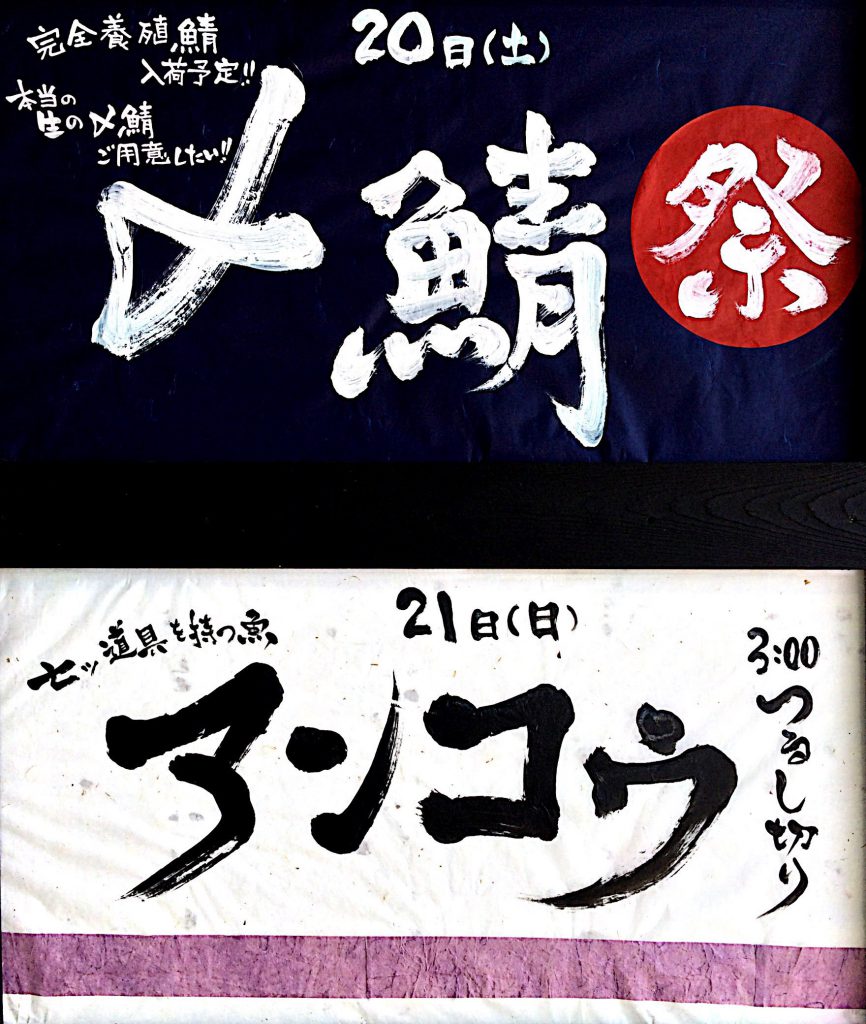 完全養殖鯖
入荷予定!!
本当の
生の〆鯖
ご用意したい!!
20日(土)
〆鯖
祭
21日(日)
七ッ道具を持つ魚
アンコウ
3:00
つるし切り